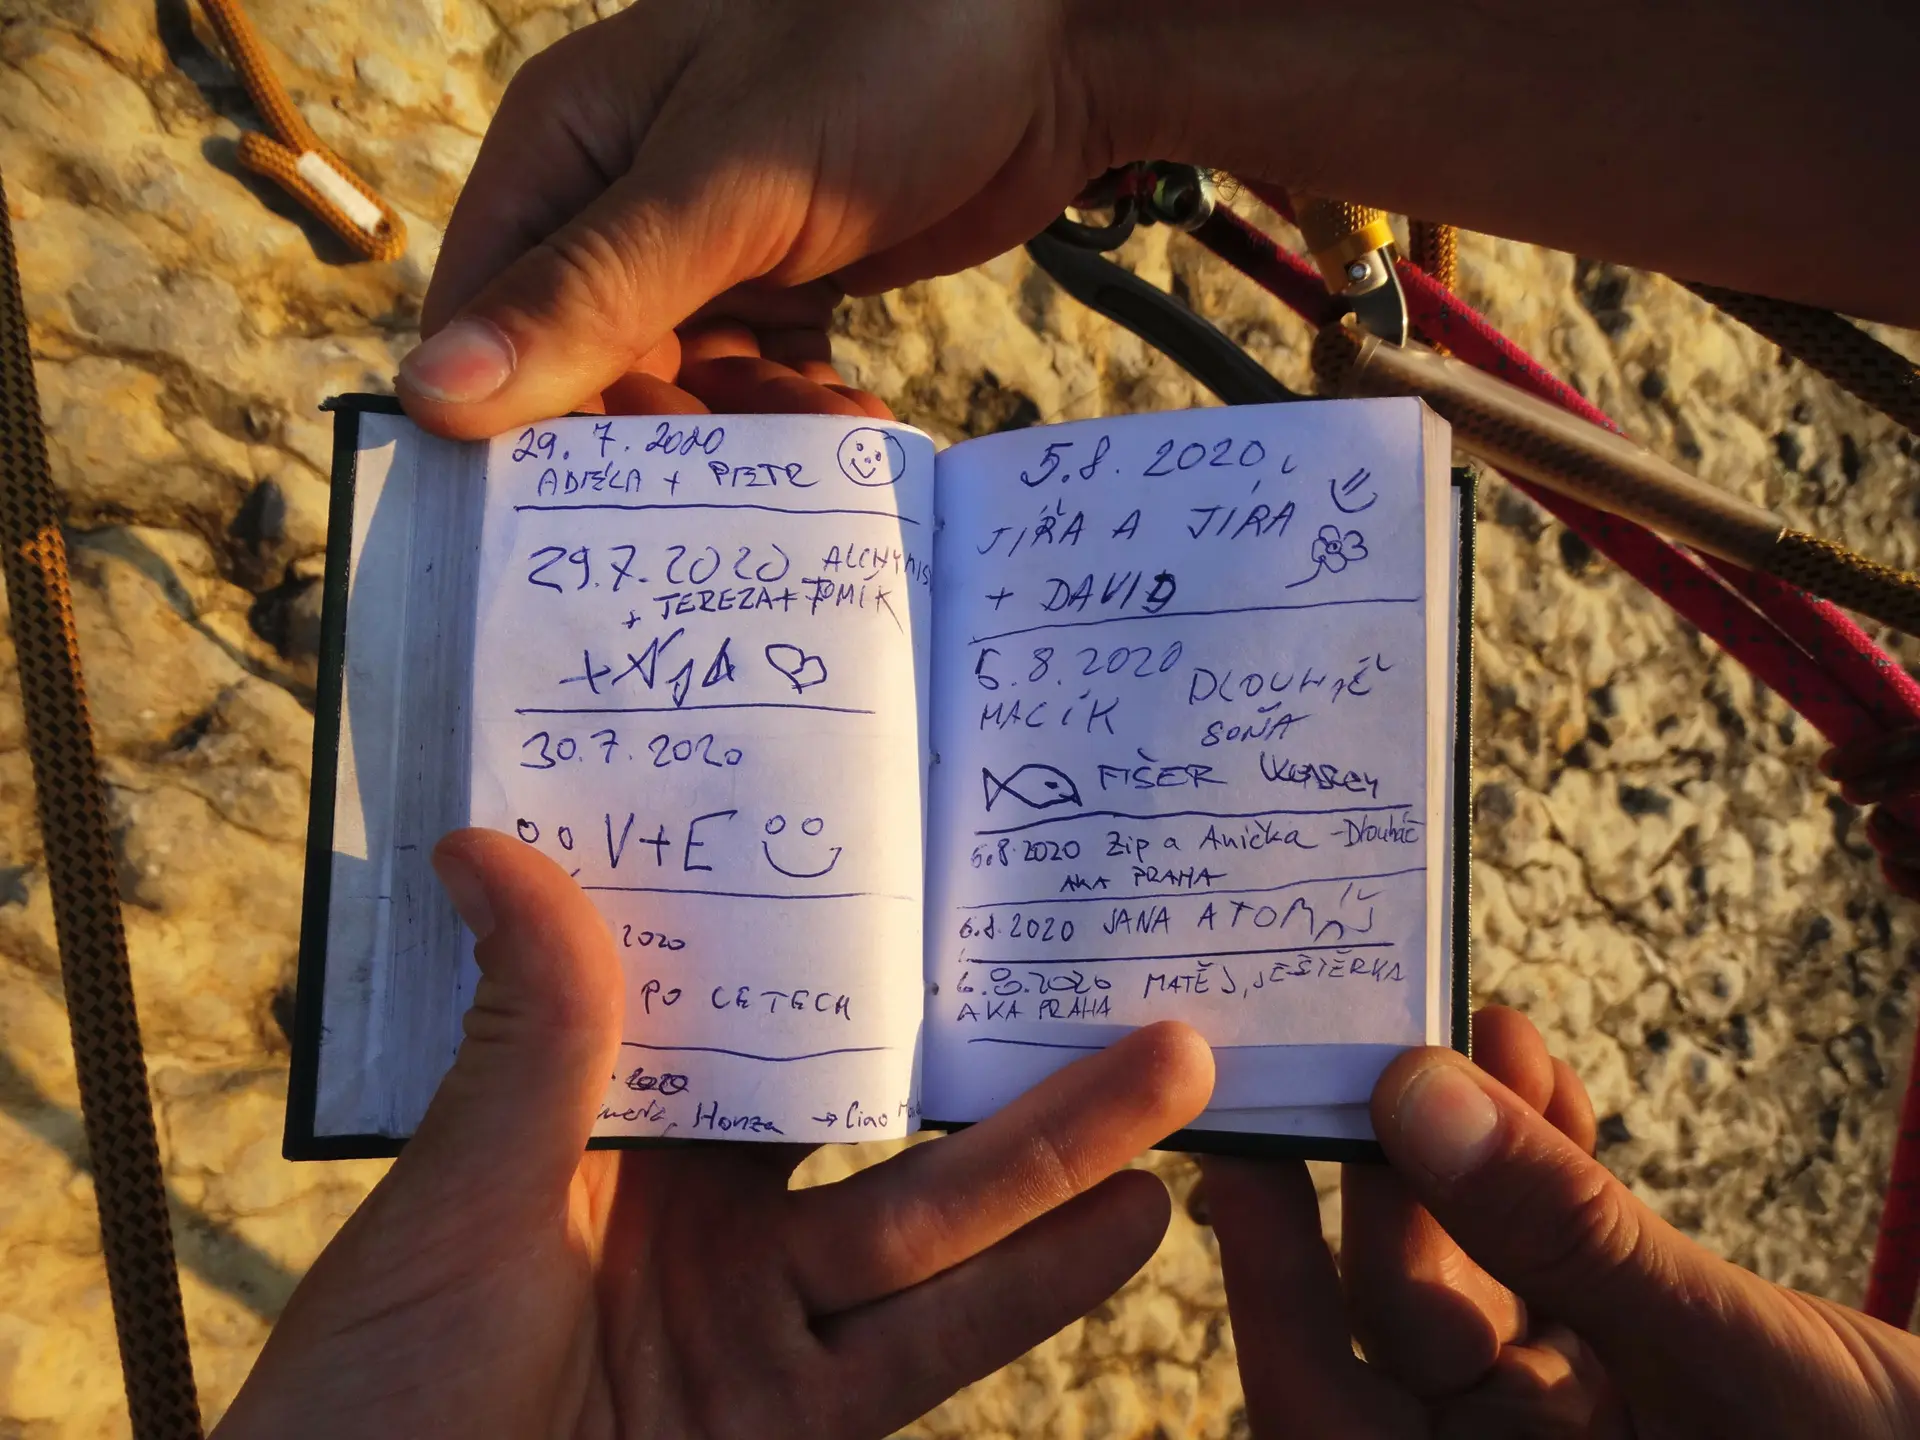 29. 7. 2020
ADÉLA + PETR
29.7.2020
+ TEREZA + TOMÍK
30.7.2020
V+E
2020
PO LETECH
2020
Honza → Ciao
5.8. 2020
JÍŘA A JÍRA
+ DAVID
5.8.2020
MACÍK
SOŇA
FIŠER
6.8.2020 Zip a Anička - Dlouháč
AKA PRAHA
6.8.2020 JANA A TOMÁŠ
6.8.2020 MATĚJ, JEŠTĚRKA
AKA PRAHA